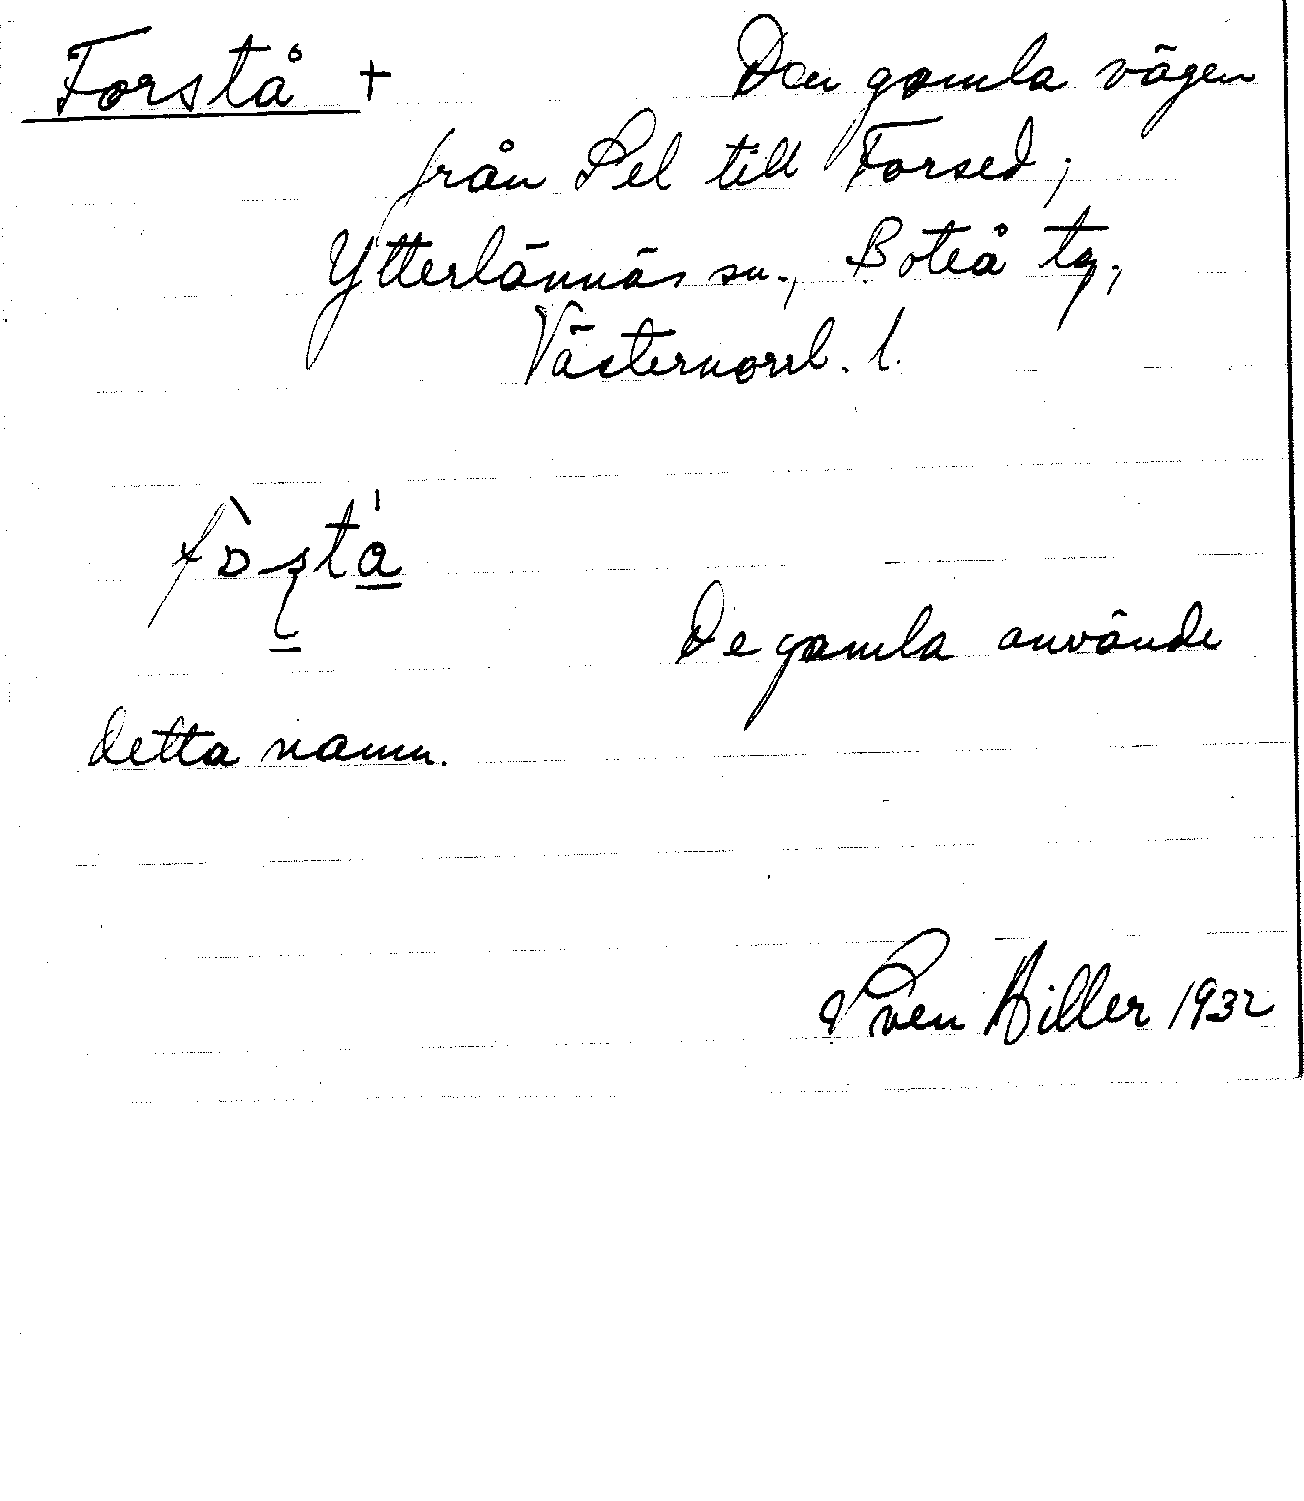 Forstå + Den gamla vägen
från Sel till Forsed,
Ytterlännäs sn., Boteå tg,
Västernorrl. l.
De gamla använde
detta namn.
Sven Hiller 1932